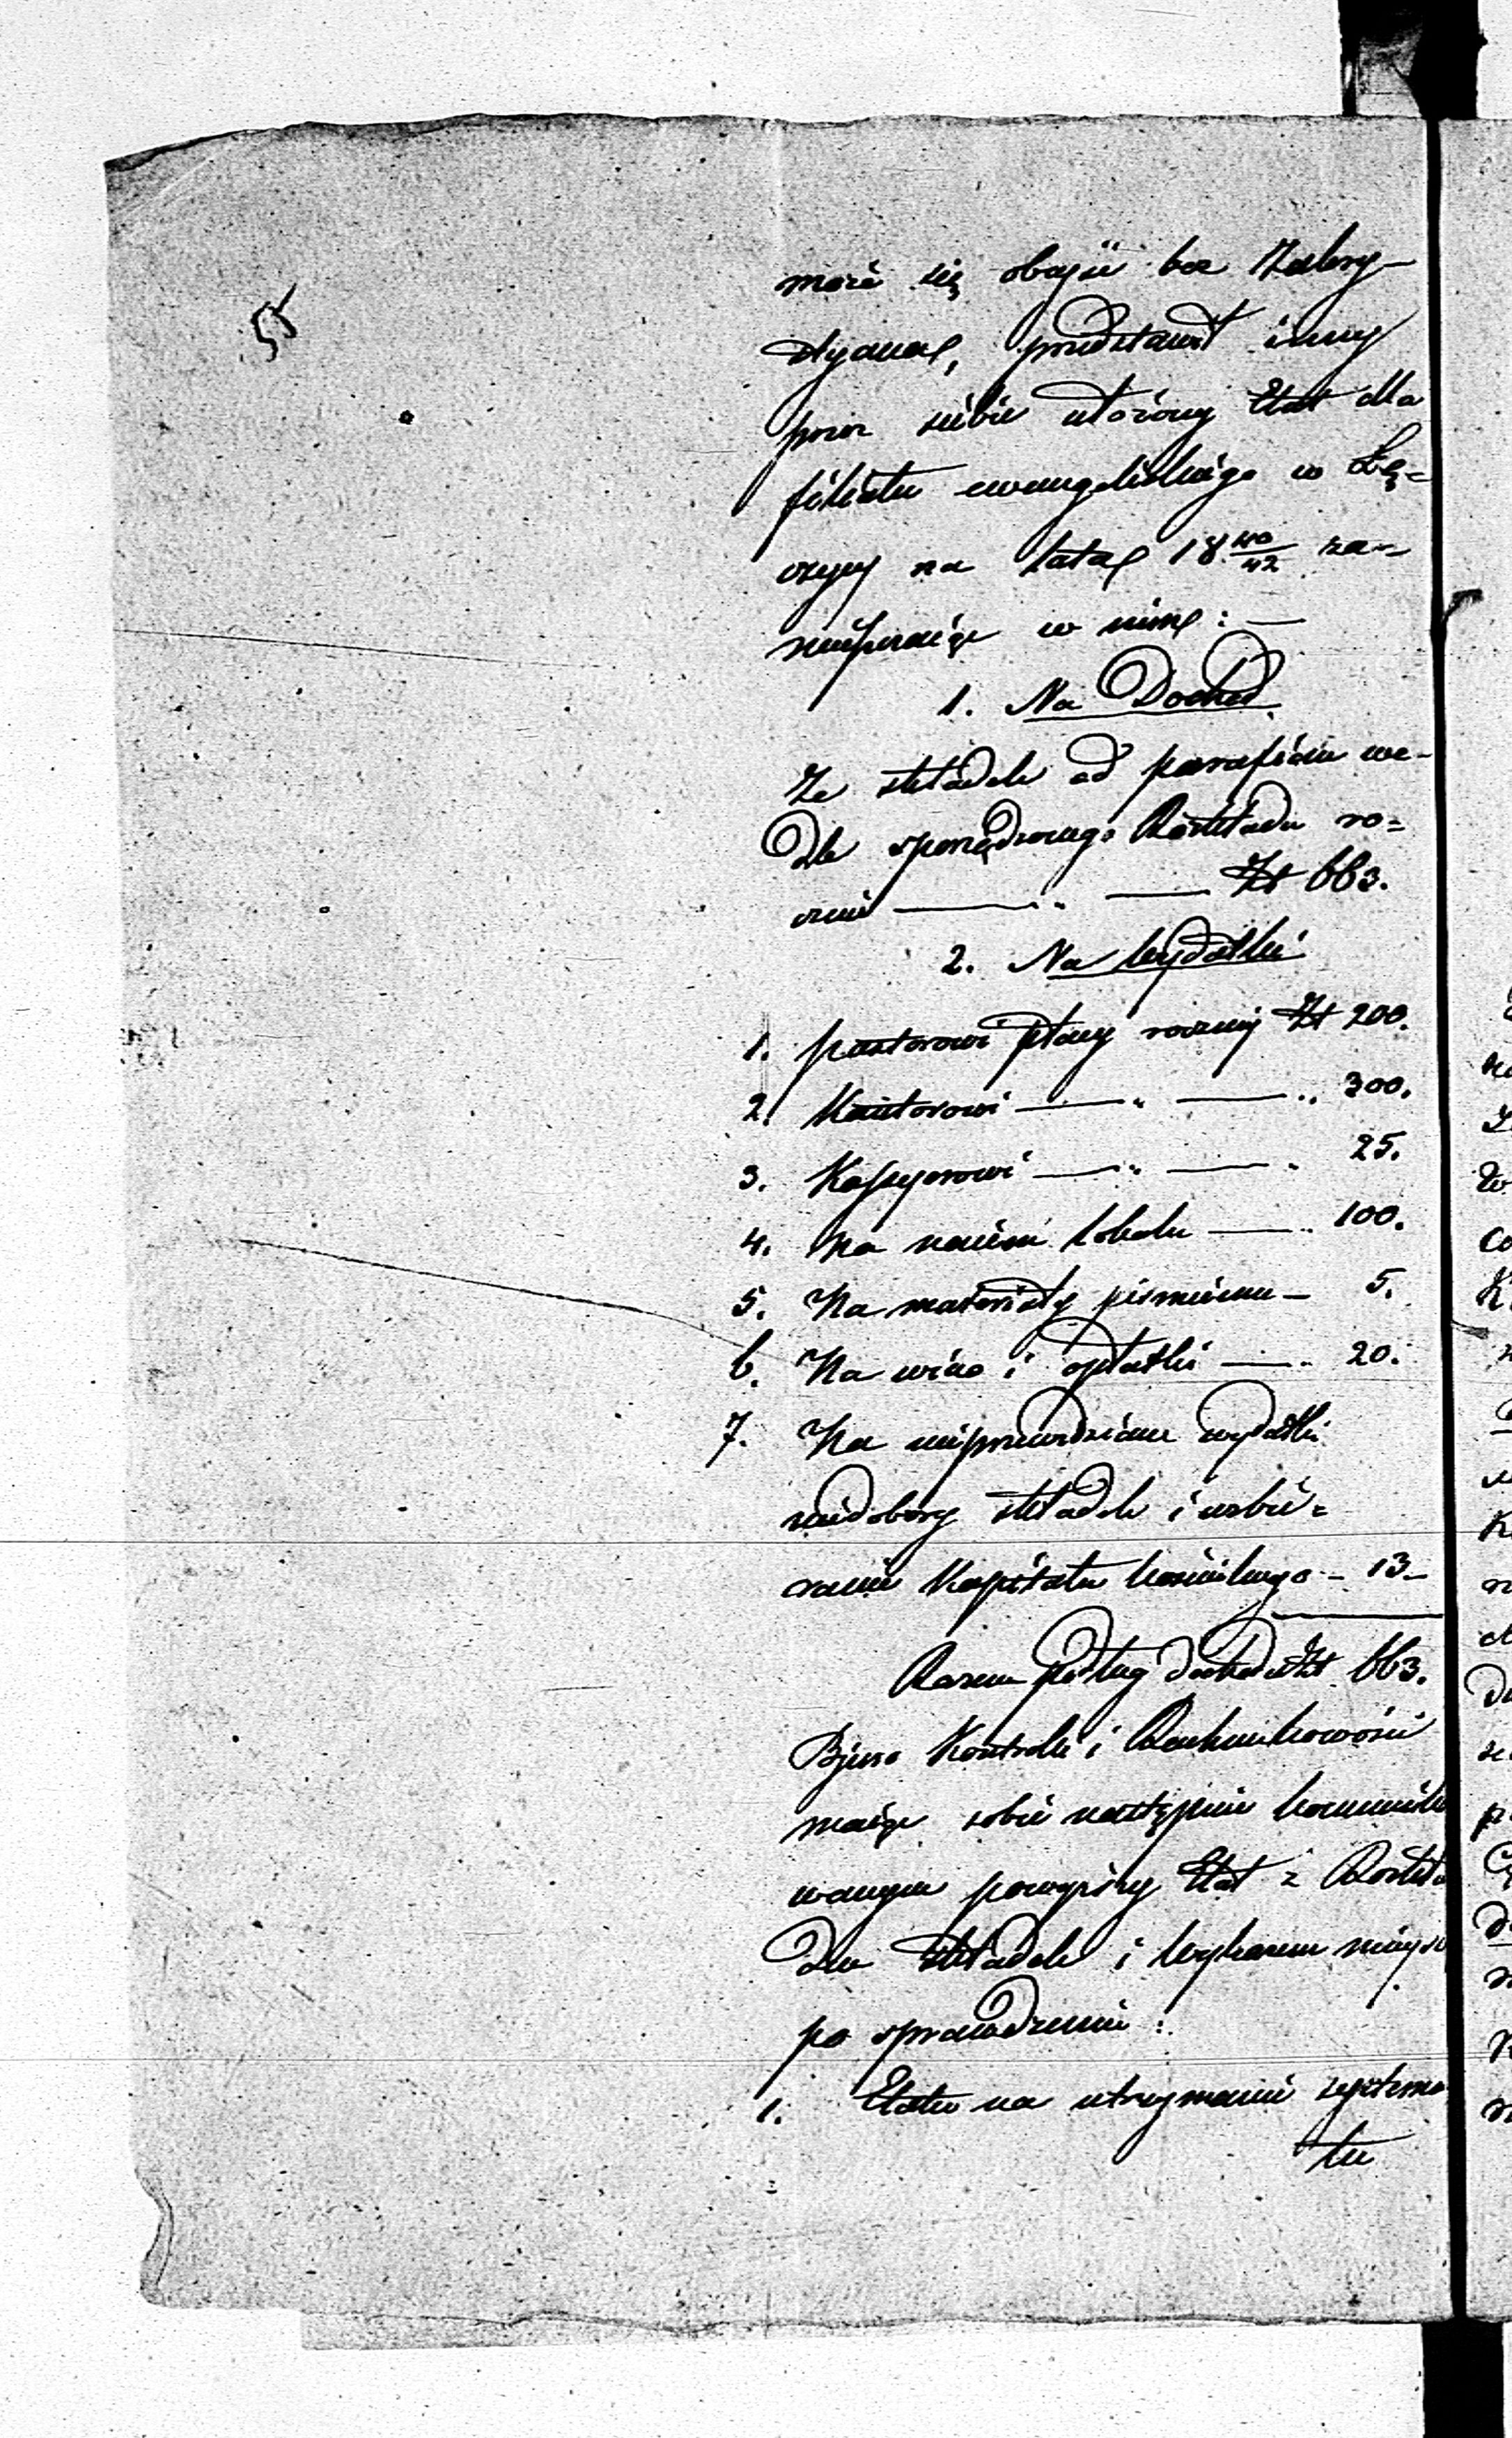 może się obejść bez Zakry-
styana, przedstawił inny
przez siebie ułożony Etat dla
filiału ewangelickiego w Łę-
czycy na lata 18 40/42 za-
mieszczając w nim: —
1. Na Dochód
Ze składek od parafian we-
dle sporządzonego Rozkładu ro-
cznie — „ — Zł 663.
2. Na wydatki
1. pastorowi płacy rocznej Zł 200.
2. Kantorowi — „ — „ 300.
3. Kassyerowi — „ — „ 25.
4. Na najem lokalu — „ 100.
5. Na materiały piśmienne — 5.
6. Na wino i opłatki — „ 20.
7. Na nieprzewidziane wydatki
niedobory składek i uzbie-
ranie Kapitału kościelnego — 13 —
Razem podług dochodu Zł 663.
Bjuro Kontroli i Rachunkowości
mając sobie następnie kommuniko
wanym powyższy Etat z Rozkła
dem składek i wykazem
po sprawdzeniu:
1. Etatu na utrzymanie
tu